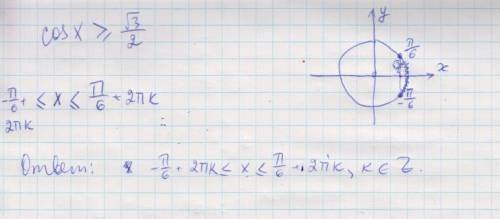 cos x ≥ √3/2
-π/6 + ≤ x ≤ π/6 + 2πk
2πk
y
π/6
x
-π/6
Ответ: x -π/6 + 2πk ≤ x ≤ π/6 + 2πk, k ∈ Z.